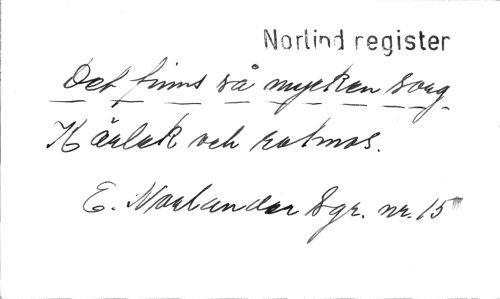 Norlind register
Det finns så mycken sorg
Kärlek och rotmos.
E. Norlander Sgr. nr. 15